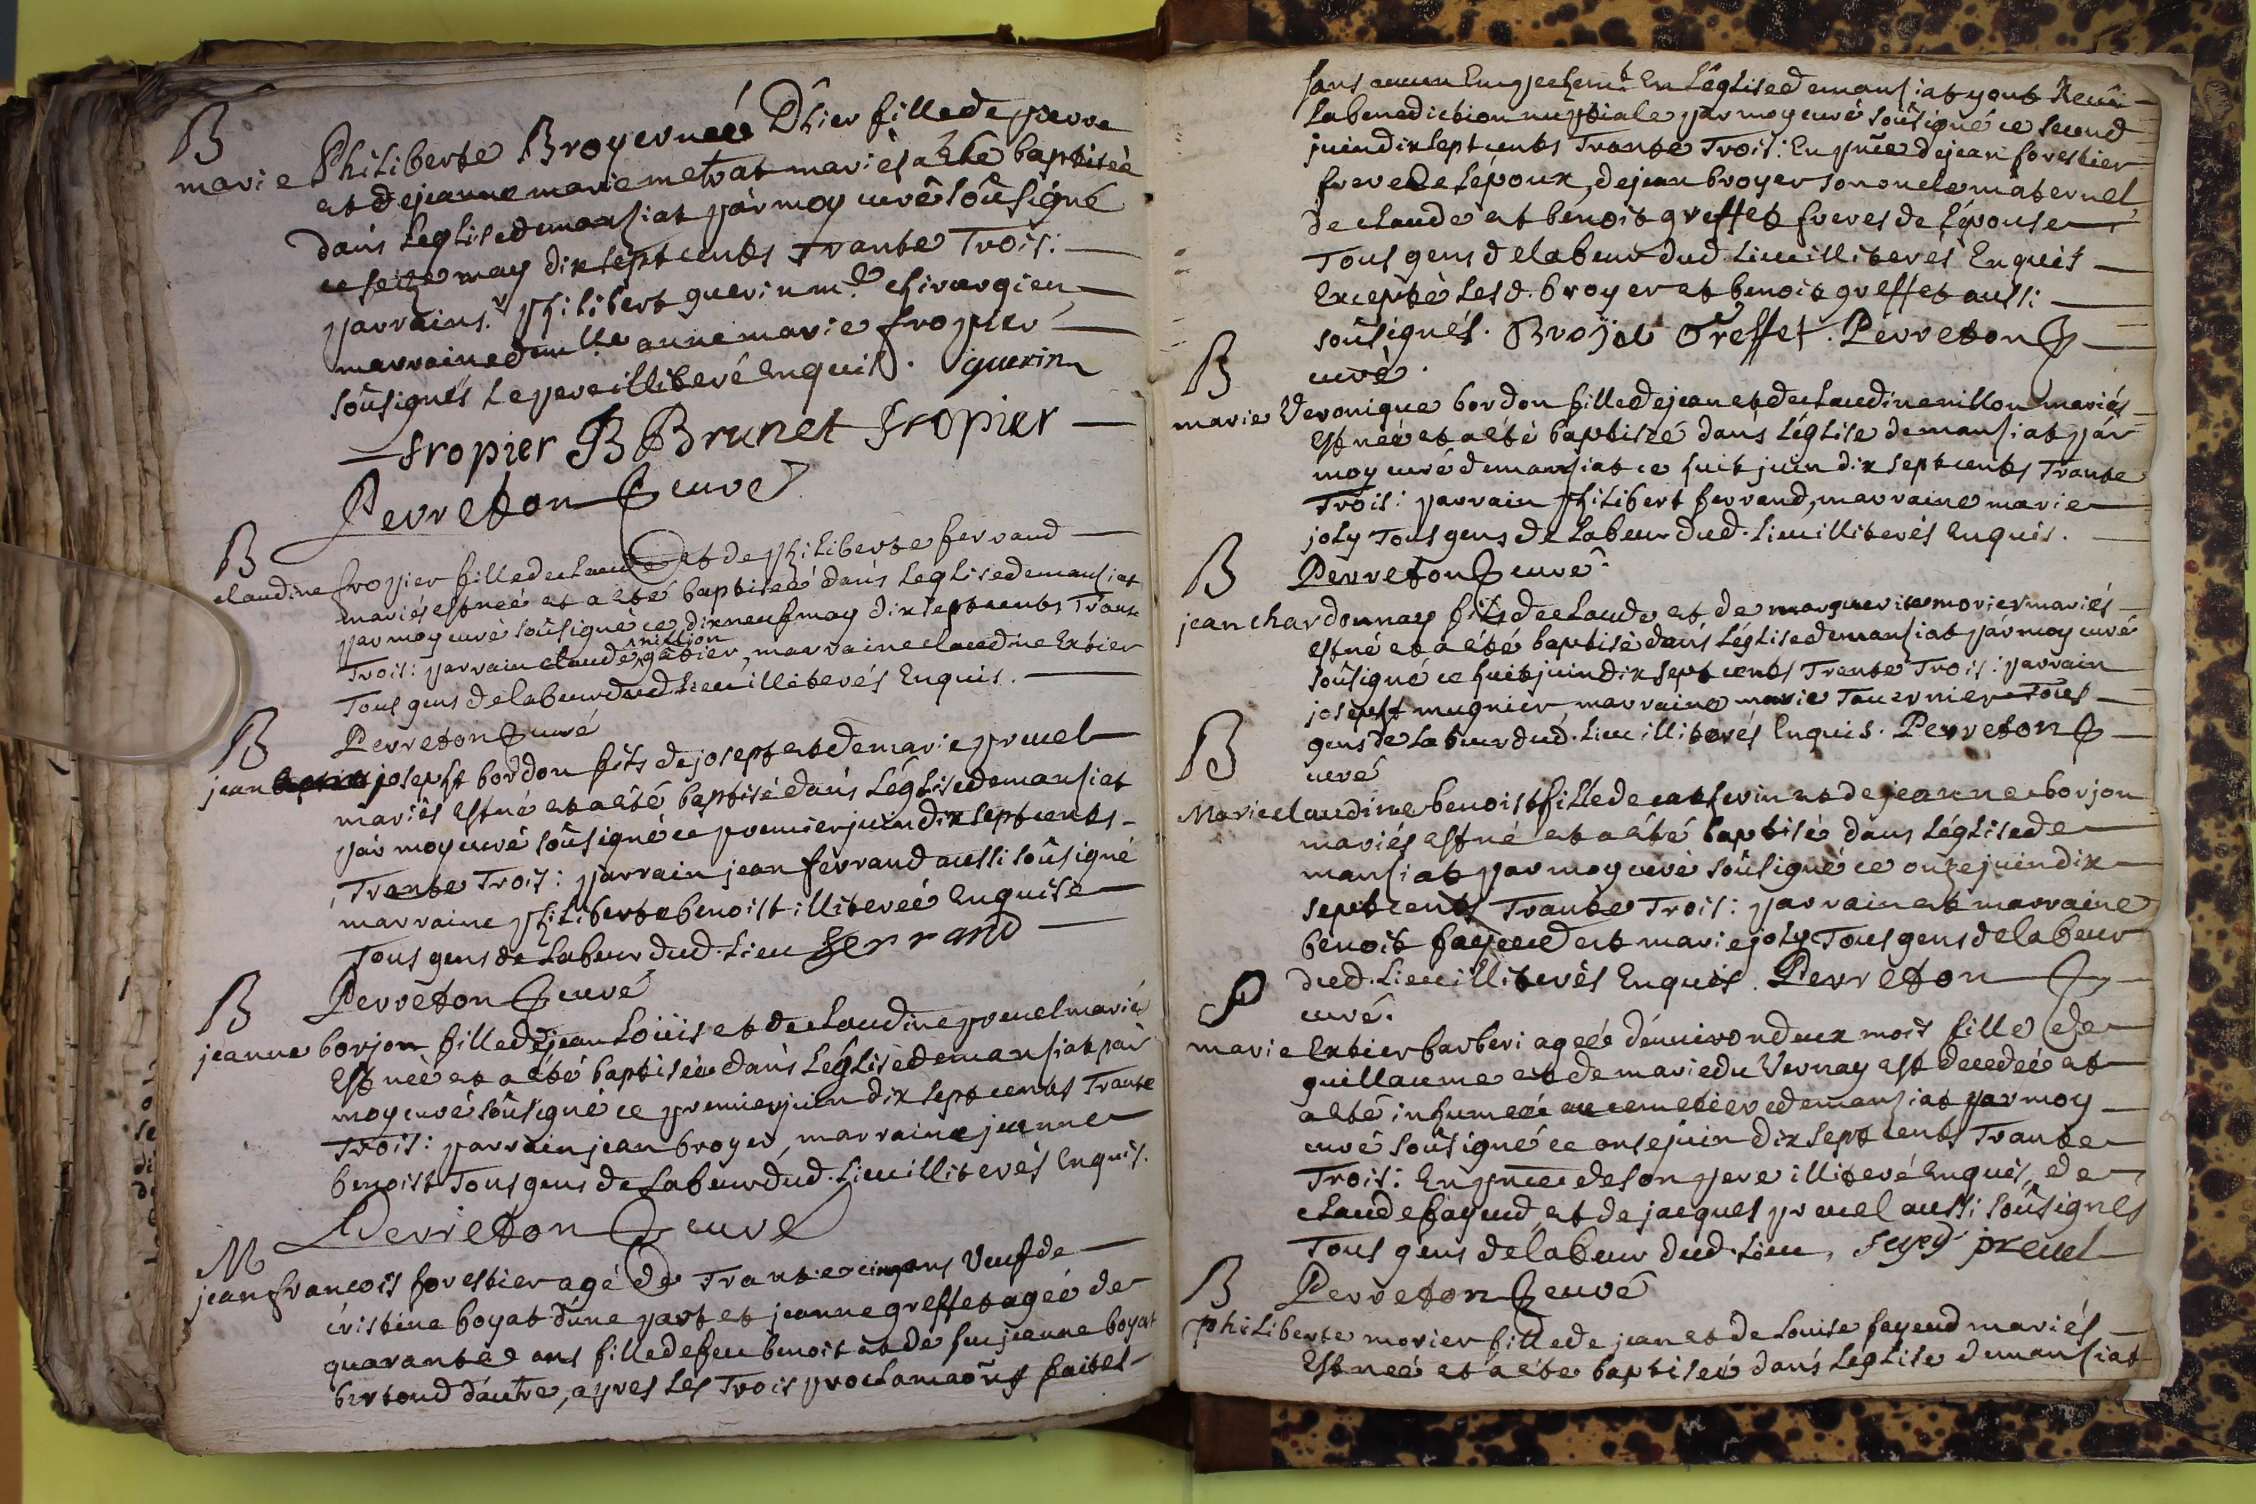 B
marie Philiberte Broyer neé D'hier fille de pierre
et de jeanne marie metrat mariés a été baptiseé
dans l'eglise de mansiat par moy curé soûsigné
ce seize may dix sept cents trante trois:
parrain s.r philibert guerin m.e chirurgien
marraine dem.lle anne marie fropier
soûsignés le pere illiteré enquis. guerin
fropier B Brunet fropier
Perreton curé
B
claudine fropier fille de claude et de philiberte ferrand
mariés est neé et a été baptiseé dans l'eglise de mansiat
par moy curé soûsigné ce dix neuf may dix sept cents trante
trois: parrain claude nillon gatier, marraine claudine Extier
tous gens de labeur dud. lieu illiterés enquis.
Perreton curé
B
jean joseph bordon fils de josept et de marie pruel
mariés est né et a été baptisé dans l'église de mansiat
par moy curé soûsigné ce premier juin dix sept cents
trente trois: parrain jean ferrand aussi soûsigné
marraine philiberte benoist illitereé enquise
tous gens de labeur dud. lieu ferrand
Perreton curé
B
jeanne borjon fille de jean Loüis et de claudine pruel mariés
est neé et a été baptiseé dans l'église de mansiat par
moy curé soûsigné ce premier juin dix sept cents trante
trois: parrain jean broyer, marraine jeanne
benoist tous gens de labeur dud. lieu illiterés enquis.
Perreton curé
M
jean francois forestier agé de trante cinq ans Veuf de
cristine boyat d'une part et jeanne greffet ageé de
quarante ans fille de feu benoit et de feu jeanne boyat
bertoud d'autre, apres les trois proclamaõns faites
sans aucun Empechem.t En l'église de mansiat y ont Receu
la benediction nuptiale par moy curé soûsigné ce second
juin dix sept cents trante trois: En pñce de jean forestier
frere de l'époux, de jean broyer son oncle maternel,
de claude et benoit greffet freres de l'épouse
tous gens de labeur dud. lieu illiterés Enquis
Excepté lesd. broyer et benoit greffet aussi
soûsignés. Broÿer Greffet. Perreton
curé.
B
marie Veronique bordon fille de jean et de claudine nillon mariés
est neé et a été baptisé dans l'église de mansiat par
moy curé de mansiat ce huit juin dix sept cents trante
trois: parrain philibert ferrand, marraine marie
joly tous gens de labeur dud. lieu illiterés enquis.
Perreton curé.
B
jean chardonnay fils de claude et de marguerite morier mariés
est né et a été baptisé dans l'église de mansiat par moy curé
soûsigné ce huit juin dix sept cents trente trois: parrain
joseph mugnier marraine marie tavernier tous
gens de labeur dud. lieu illiterés Enquis. Perreton
curé
B
Marie claudine benoist fille de catherin et de jeanne borjon
mariés est né et a été baptisé dans l'église de
mansiat par moy curé soûsigné ce onze juin dix
sept cents trante trois: parrain et marraine
benoit fayeud et marie joly tous gens de labeur
dud. lieu illiterés enquis. Perreton
curé.
marie Extier barberi ageé d'environ deux mois fille de
guillaume et de marie du Vernay est decedeé et
a été inhumeé au cemetiere de mansiat par moy
curé soûsigné ce onse juin dix sept cents trante
trois: En pñce de son pere illiteré enquis, de
claude fayeud et de jacques pruel aussi soûsignés
tous gens de labeur dud. lieu, preuel
Perreton curé
B
philiberte morier fille de jean et de louise fayeud mariés
est neé et a été baptiseé dans l'eglise de mansiat